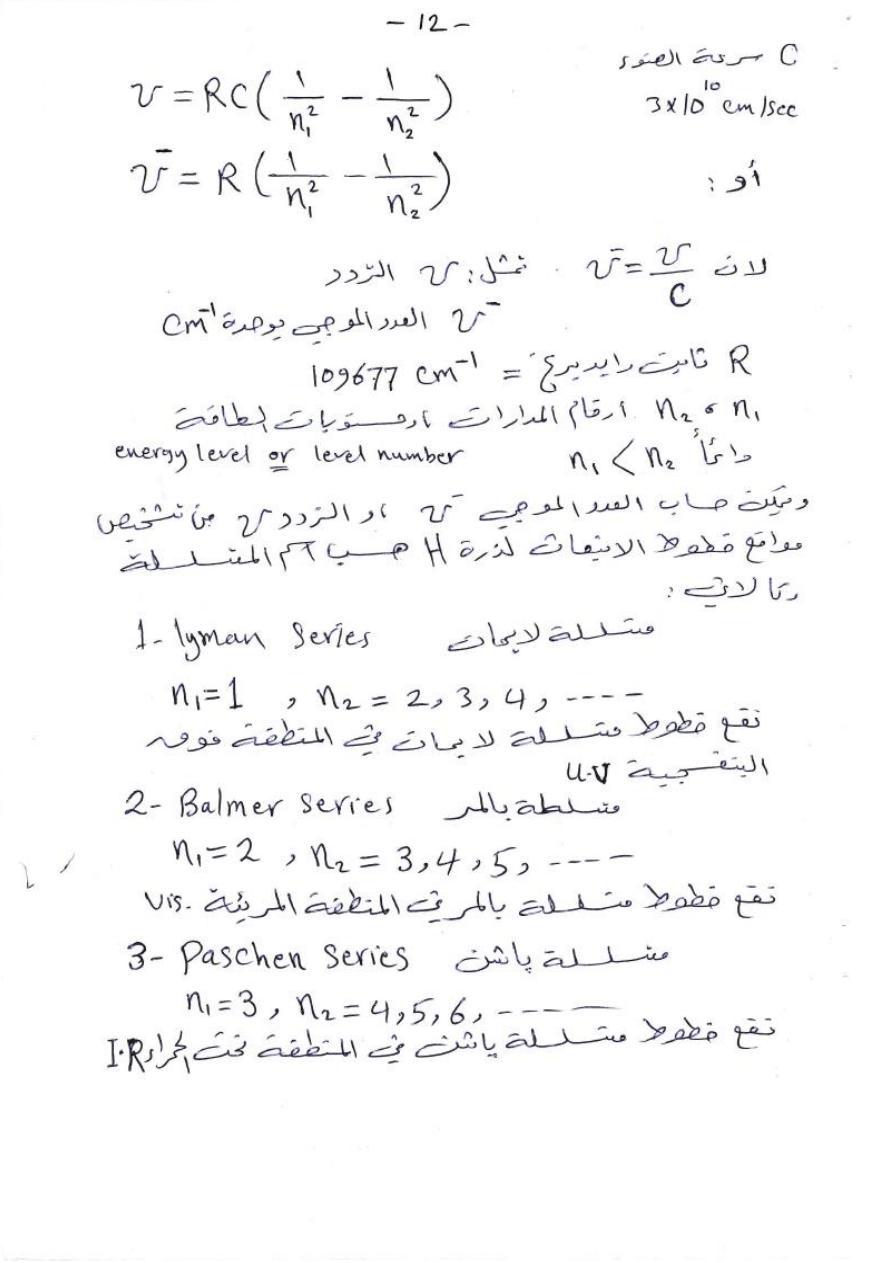 - 12 -
C سرعة الضوء
3x10^10 cm/sec
ν = RC ( 1/n₁² − 1/n₂² )
أو :
ν̄ = R ( 1/n₁² − 1/n₂² )
لان ν̄ = ν/C . تمثل : ν التردد
ν̄ العدد الموجي بوحدة cm⁻¹
R ثابت رايدبرغ = 109677 cm⁻¹
n₁ ، n₂ ارقام المدارات او مستويات الطاقة
دائماً n₁ < n₂ energy level or level number
ويمكن حساب العدد الموجي ν̄ او التردد ν من تشخيص
مواقع خطوط الانبعاث لذرة H حسب اسم المتسلسلة
وكالاتي :
1- lyman Series متسلسلة لايمان
n₁=1 , n₂ = 2, 3, 4, ----
تقع خطوط متسلسلة لايمان في المنطقة فوق
البنفسجية U.V
2- Balmer Series متسلسلة بالمر
n₁=2 , n₂ = 3,4,5, ----
تقع خطوط متسلسلة بالمر في المنطقة المرئية Vis.
3- Paschen Series متسلسلة باشن
n₁=3 , n₂=4,5,6, ----
تقع خطوط متسلسلة باشن في المنطقة تحت الحمراء I.R